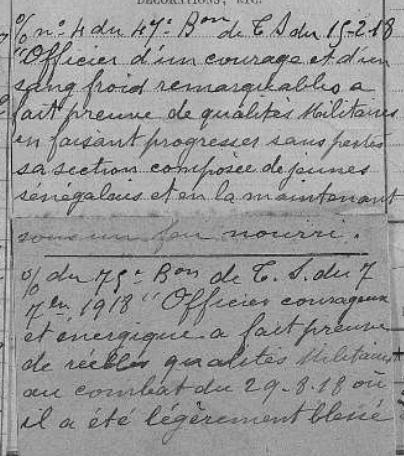 DÉCORATIONS, ETC.
% n° 4 du 47e Bon de T S du 15-2-18
"Officier d'un courage et d'un
sang froid remarquables a
fait preuve de qualités Militaires
en faisant progresser sans pertes
sa section composée de jeunes
sénégalais et en la maintenant
sous un feu nourri.
% du 75e Bon de T. S. du 7
7bre 1918 "Officier courageux
et energique a fait preuve
de réelles qualités Militaires
au combat du 29-8-18 où
il a été légèrement blessé